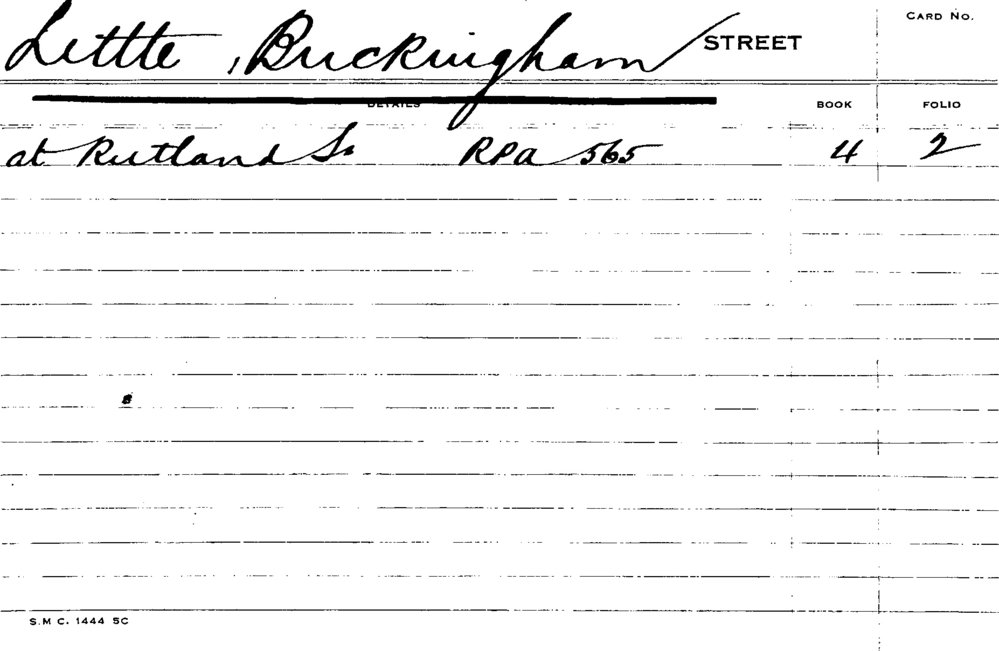 CARD NO.
Little Buckingham STREET
DETAILS BOOK FOLIO
at Rutland St RPA 565 4 2
S.M C. 1444 5C